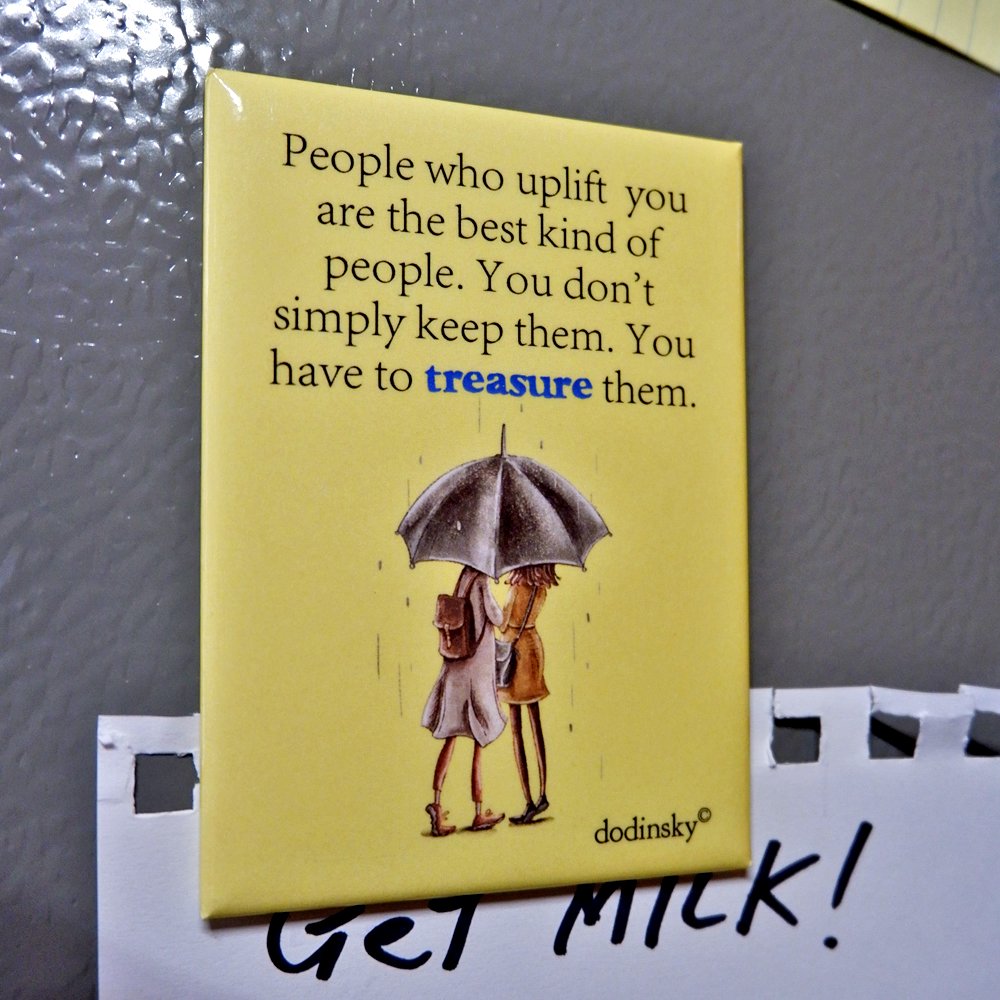 People who uplift you
are the best kind of
people. You don't
simply keep them. You
have to treasure them.
dodinsky©
GeT MILK!